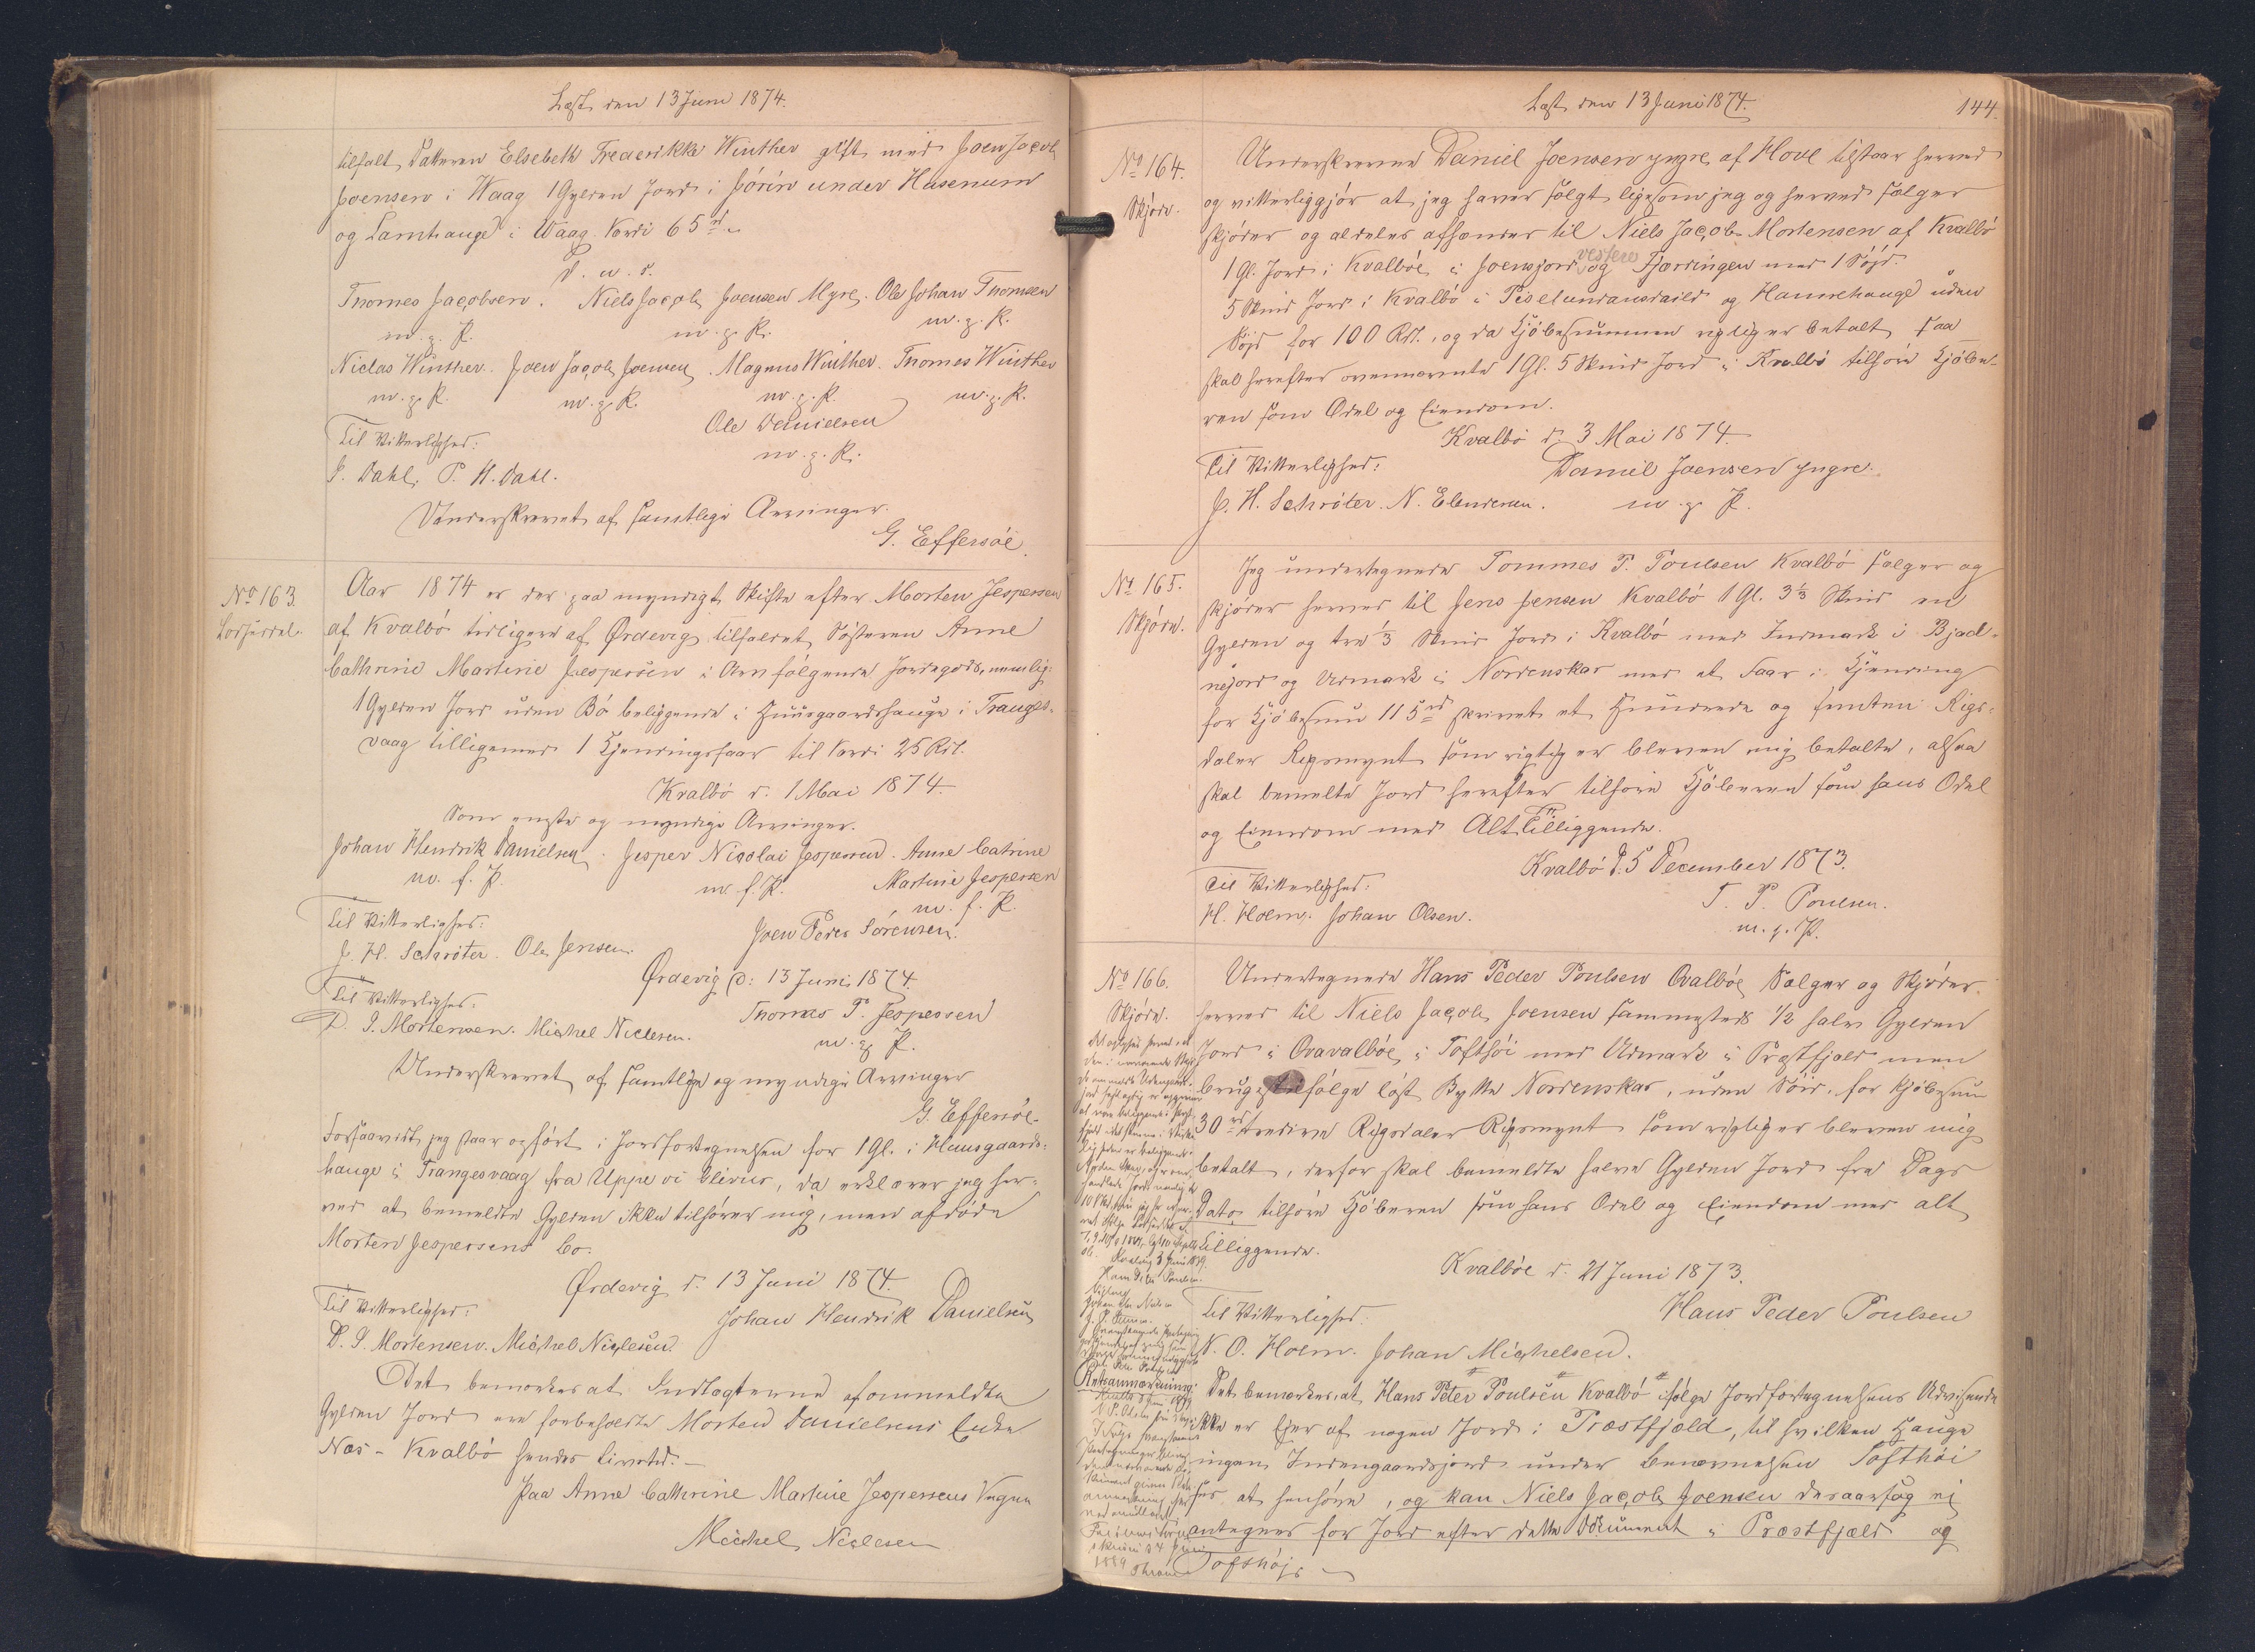 Læst den 13 Juni 1874.
tilfalt Datteren Elsebeth Frederikke Winther gift med Joen Jacob
Joensen i Waag 1 Gylden Jord i Pórin under Husenum
og Lamhauge i Waag. Værdi 65 rd.
D. u. s.
Thomas Jacobsen. Niels Jacob Joensen Myre. Ole Johan Thomsen
m. g. P. m. g. P. m. g. P.
Niclas Winther. Joen Jacob Joensen. Magnus Winther. Thomas Winther
m. g. P. m. g. P. m. g. P. m. g. P.
Ole Danielsen
m. g. P.
Til Vitterlighed:
J. Dahl. P. H. Dahl.
Underskrevet af samtlige Arvinger.
G. Effersöe.
No 163.
Lodseddel.
Aar 1874 er der paa myndigt Skifte efter Morten Jespersen
af Kvalbö tidligere af Ördevig tilfaldet Søsteren Anne
Cathrine Martine Jespersen i Arv følgende Jordegods, nemlig:
1 Gylden Jord uden Bö beliggende i Huusgaardshauge i Tranges-
vaag tilligemed 1 Kjendingsfaar til Værdi 25 Rdl.
Kvalbö d. 1 Mai 1874.
Som eneste og myndige Arvinger.
Johan Hendrik Danielsen. Jesper Nicolai Jespersen. Anne Catrine
Martine Jespersen
m. f. P. m. f. P. m. f. P.
Til Vitterlighed:
J. H. Schröter. Ole Jensen.
Joen Peder Sörensen.
Ördevig d: 13 Juni 1874.
Til Vitterlighed:
D. J. Mortensen. Michel Niclesen.
Thomas P. Jespersen
m. g. P.
Underskrevet af samtlige og myndige Arvinger
G. Effersöe.
Forsaavidt jeg staar opført i Jordfortegnelsen for 1 Gl. i Huusgaards-
hauge i Trangesvaag fra Uppe vi, da erklærer jeg her-
ved at bemeldte Gylden ikke tilhører mig, men afdøde
Morten Jespersens Bo.
Ördevig d. 13 Juni 1874.
Til Vitterlighed:
Johan Hendrik Danielsen
D. J. Mortensen. Michel Niclesen.
Det bemærkes at Indtægterne af ommeldte
Gylden Jord ere forbeholdte Morten Danielsens Enke
Næs - Kvalbö hendes Livstid. -
Paa Anne Cathrine Martine Jespersens Vegne
Michel Niclesen
Læst den 13 Juni 1874.
144.
No 164.
Skjøde.
Underskrevne Daniel Joensen yngre af Hove tilstaar herved
og vitterliggjör at jeg haver solgt ligesom jeg og herved sælger
skjöder og aldeles afhænder til Niels Jacob Mortensen af Kvalbö
1 Gl. Jord i Kvalböe i Joensjord vesten og Fjærringen med 1 Söjd.
5 Skind Jord i Kvalbö i og Hamrehauge uden
Söjd for 100 Rdl., og da Kjöbesummen rigtig er betalt, saa
skal herefter ovennævnte 1 Gl. 5 Skind Jord i Kvalbö tilhöre Kjöbe-
ren som Odel og Eiendom.
Kvalbö d. 3 Mai 1874.
Til Vitterlighed:
Daniel Joensen yngre.
J. H. Schröter. N. Elendersen. m. g. P.
No 165.
Skjøde.
Jeg undertegnede Tommes P. Poulsen Kvalbö sælger og
skjøder herved til Jens Jensen Kvalbö 1 Gl. 3 1/3 Skind en
Gylden og tre 1/3 Skind Jord i Kvalbö med Indmark i Bjad-
nejord og Udmark i Nordenskar med et Faar i Kjending
for Kjöbesum 115 rd skrivet et Hundrede og femten Rigs-
daler Rigsmynt som rigtig er bleven mig betalte, altsaa
skal bemeldte Jord herefter tilhöre Kjöberen som hans Odel
og Eiendom med Alt Tilliggende.
Kvalbö d. 5 December 1873.
Til Vitterlighed:
T. P. Poulsen.
H. Holm. Johan Olsen.
m. g. P.
No 166.
Skjøde.
Undertegnede Hans Peder Poulsen Qvalböe Sælger og Skjöder
herved til Niels Jacob Joensen sammesteds 1/2 halv Gylden
Jord i Qvavalböe i Tofthöi med Udmark i Præstfjæld men
bruges ifölge löst Bytte Nordenskar, uden Söid, for Kjöbesum
30 rd tredive Rigsdaler Rigsmynt som rigtig er bleven mig
betalt, derfor skal bemeldte halve Gylden Jord fra Dags
Dato tilhöre Kjöberen som hans Odel og Eiendom med alt
Tilliggende.
Kvalböe d. 21 Juni 1873.
Til Vitterlighed:
Hans Peder Poulsen
N. O. Holm. Johan Michelsen.
Retsanmærkning:
Det bemærkes, at Hans Peter Poulsen Kvalbö ifølge Jordfortegnelsens Udvisende
ikke er Ejer af nogen Jord i Præstfjæld, til hvilken Hauge
ingen Indengaardsjord under Benævnelsen Tofthöi
ses at henhöre, og kan Niels Jacob Joensen desaarsag ej
antegnes for Jord efter dette Document i Præstfjæld og
Tofthöj.